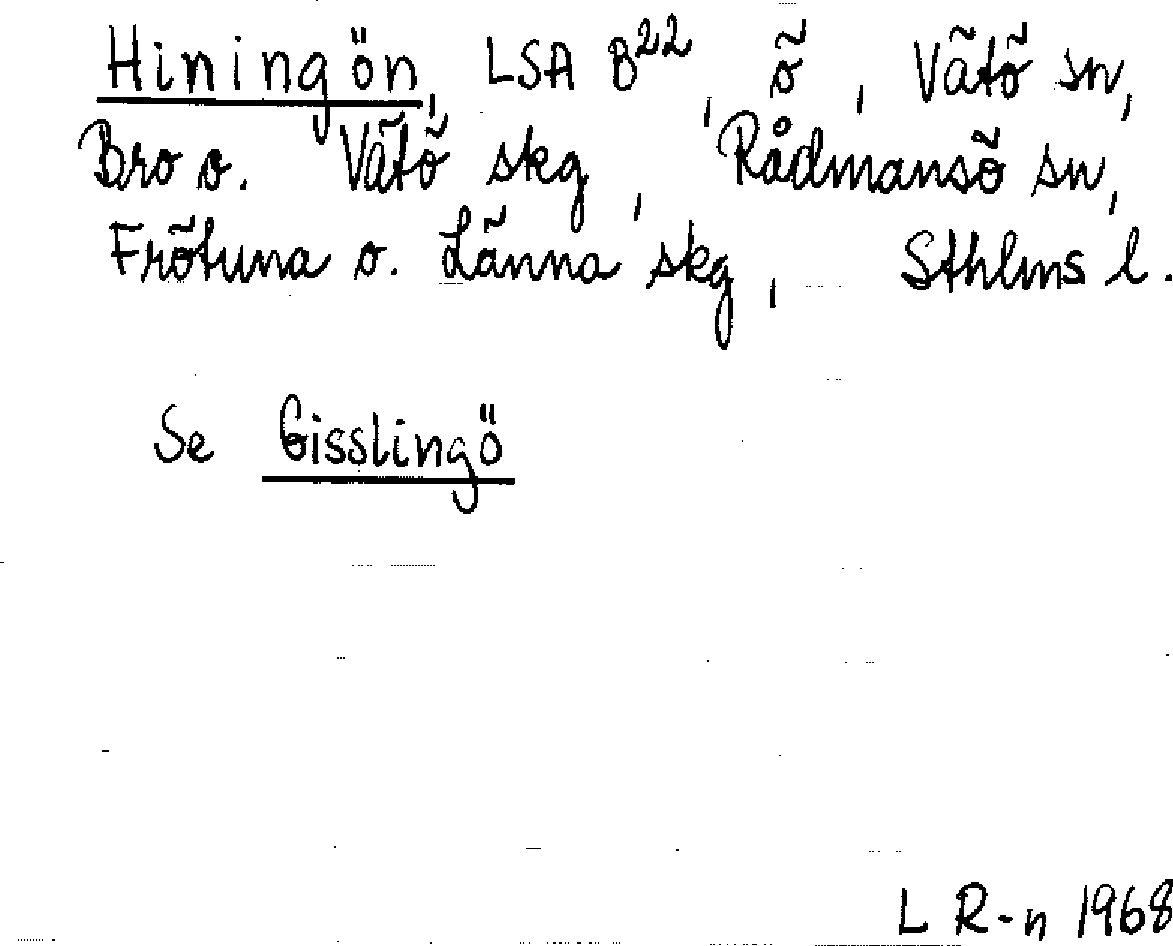 Hiningön, LSA B²², ö, Vätö sn,
Bro o. Vätö skg, Rådmansö sn,
Frötuna o. Länna skg, Sthlms l.
Se Gisslingö
L R-n 1968